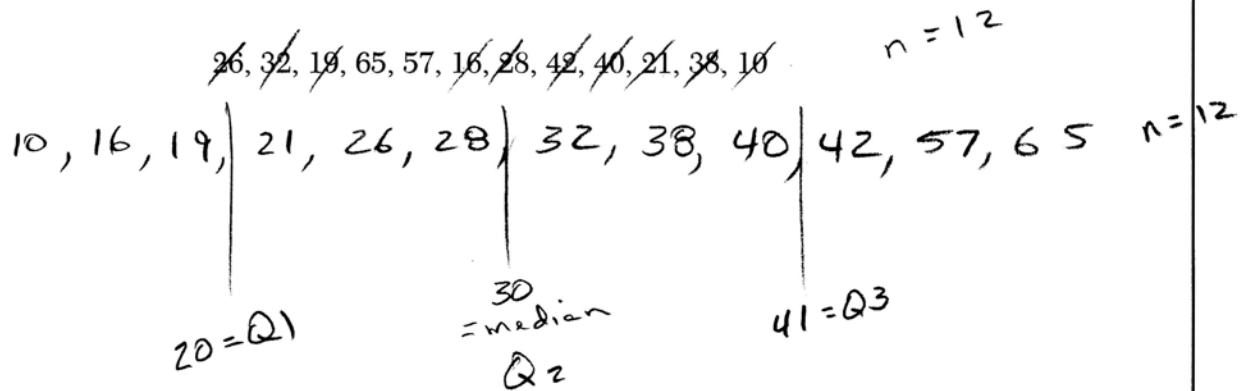 n = 12
26, 32, 19, 65, 57, 16, 28, 42, 40, 21, 38, 10
10, 16, 19, 21, 26, 28, 32, 38, 40, 42, 57, 65 n = 12
20 = Q1
30
= median
Q2
41 = Q3